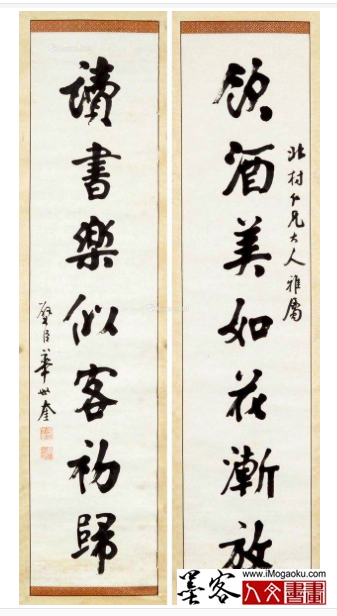 北村仁兄大人雅屬
飲酒美如花漸放
讀書樂似客初歸
璧臣華世奎
www.iMogaoku.com
墨客人文書畫